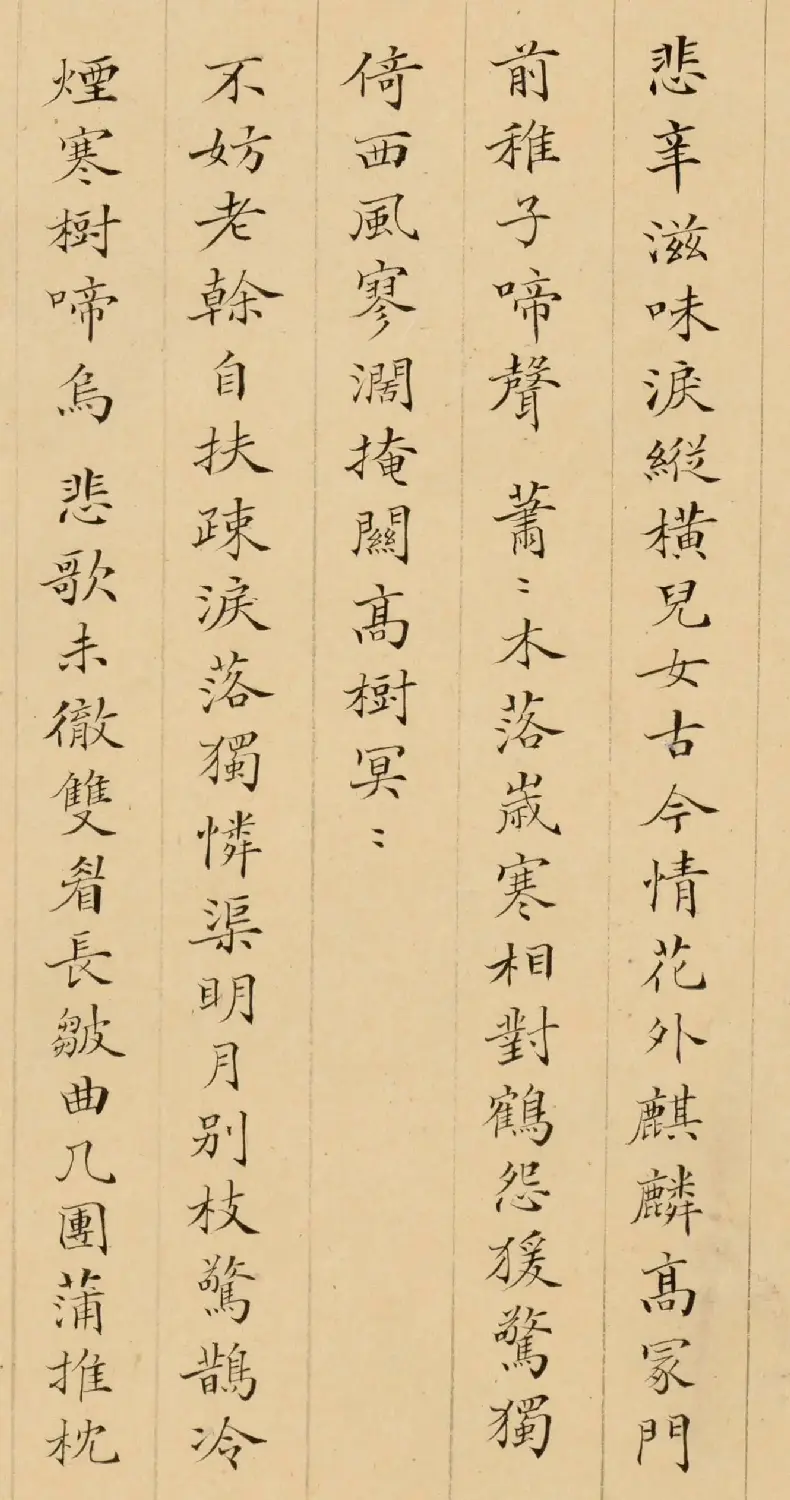 悲辛滋味淚縱橫兒女古今情花外麒麟高冢門
前稚子啼聲 蕭〻木落歲寒相對鶴怨猨驚獨
倚西風寥濶掩關高樹冥〻
不妨老榦自扶疎淚落獨憐渠明月別枝驚鵲冷
煙寒樹啼烏 悲歌未徹雙眉長皺曲几團蒲推枕